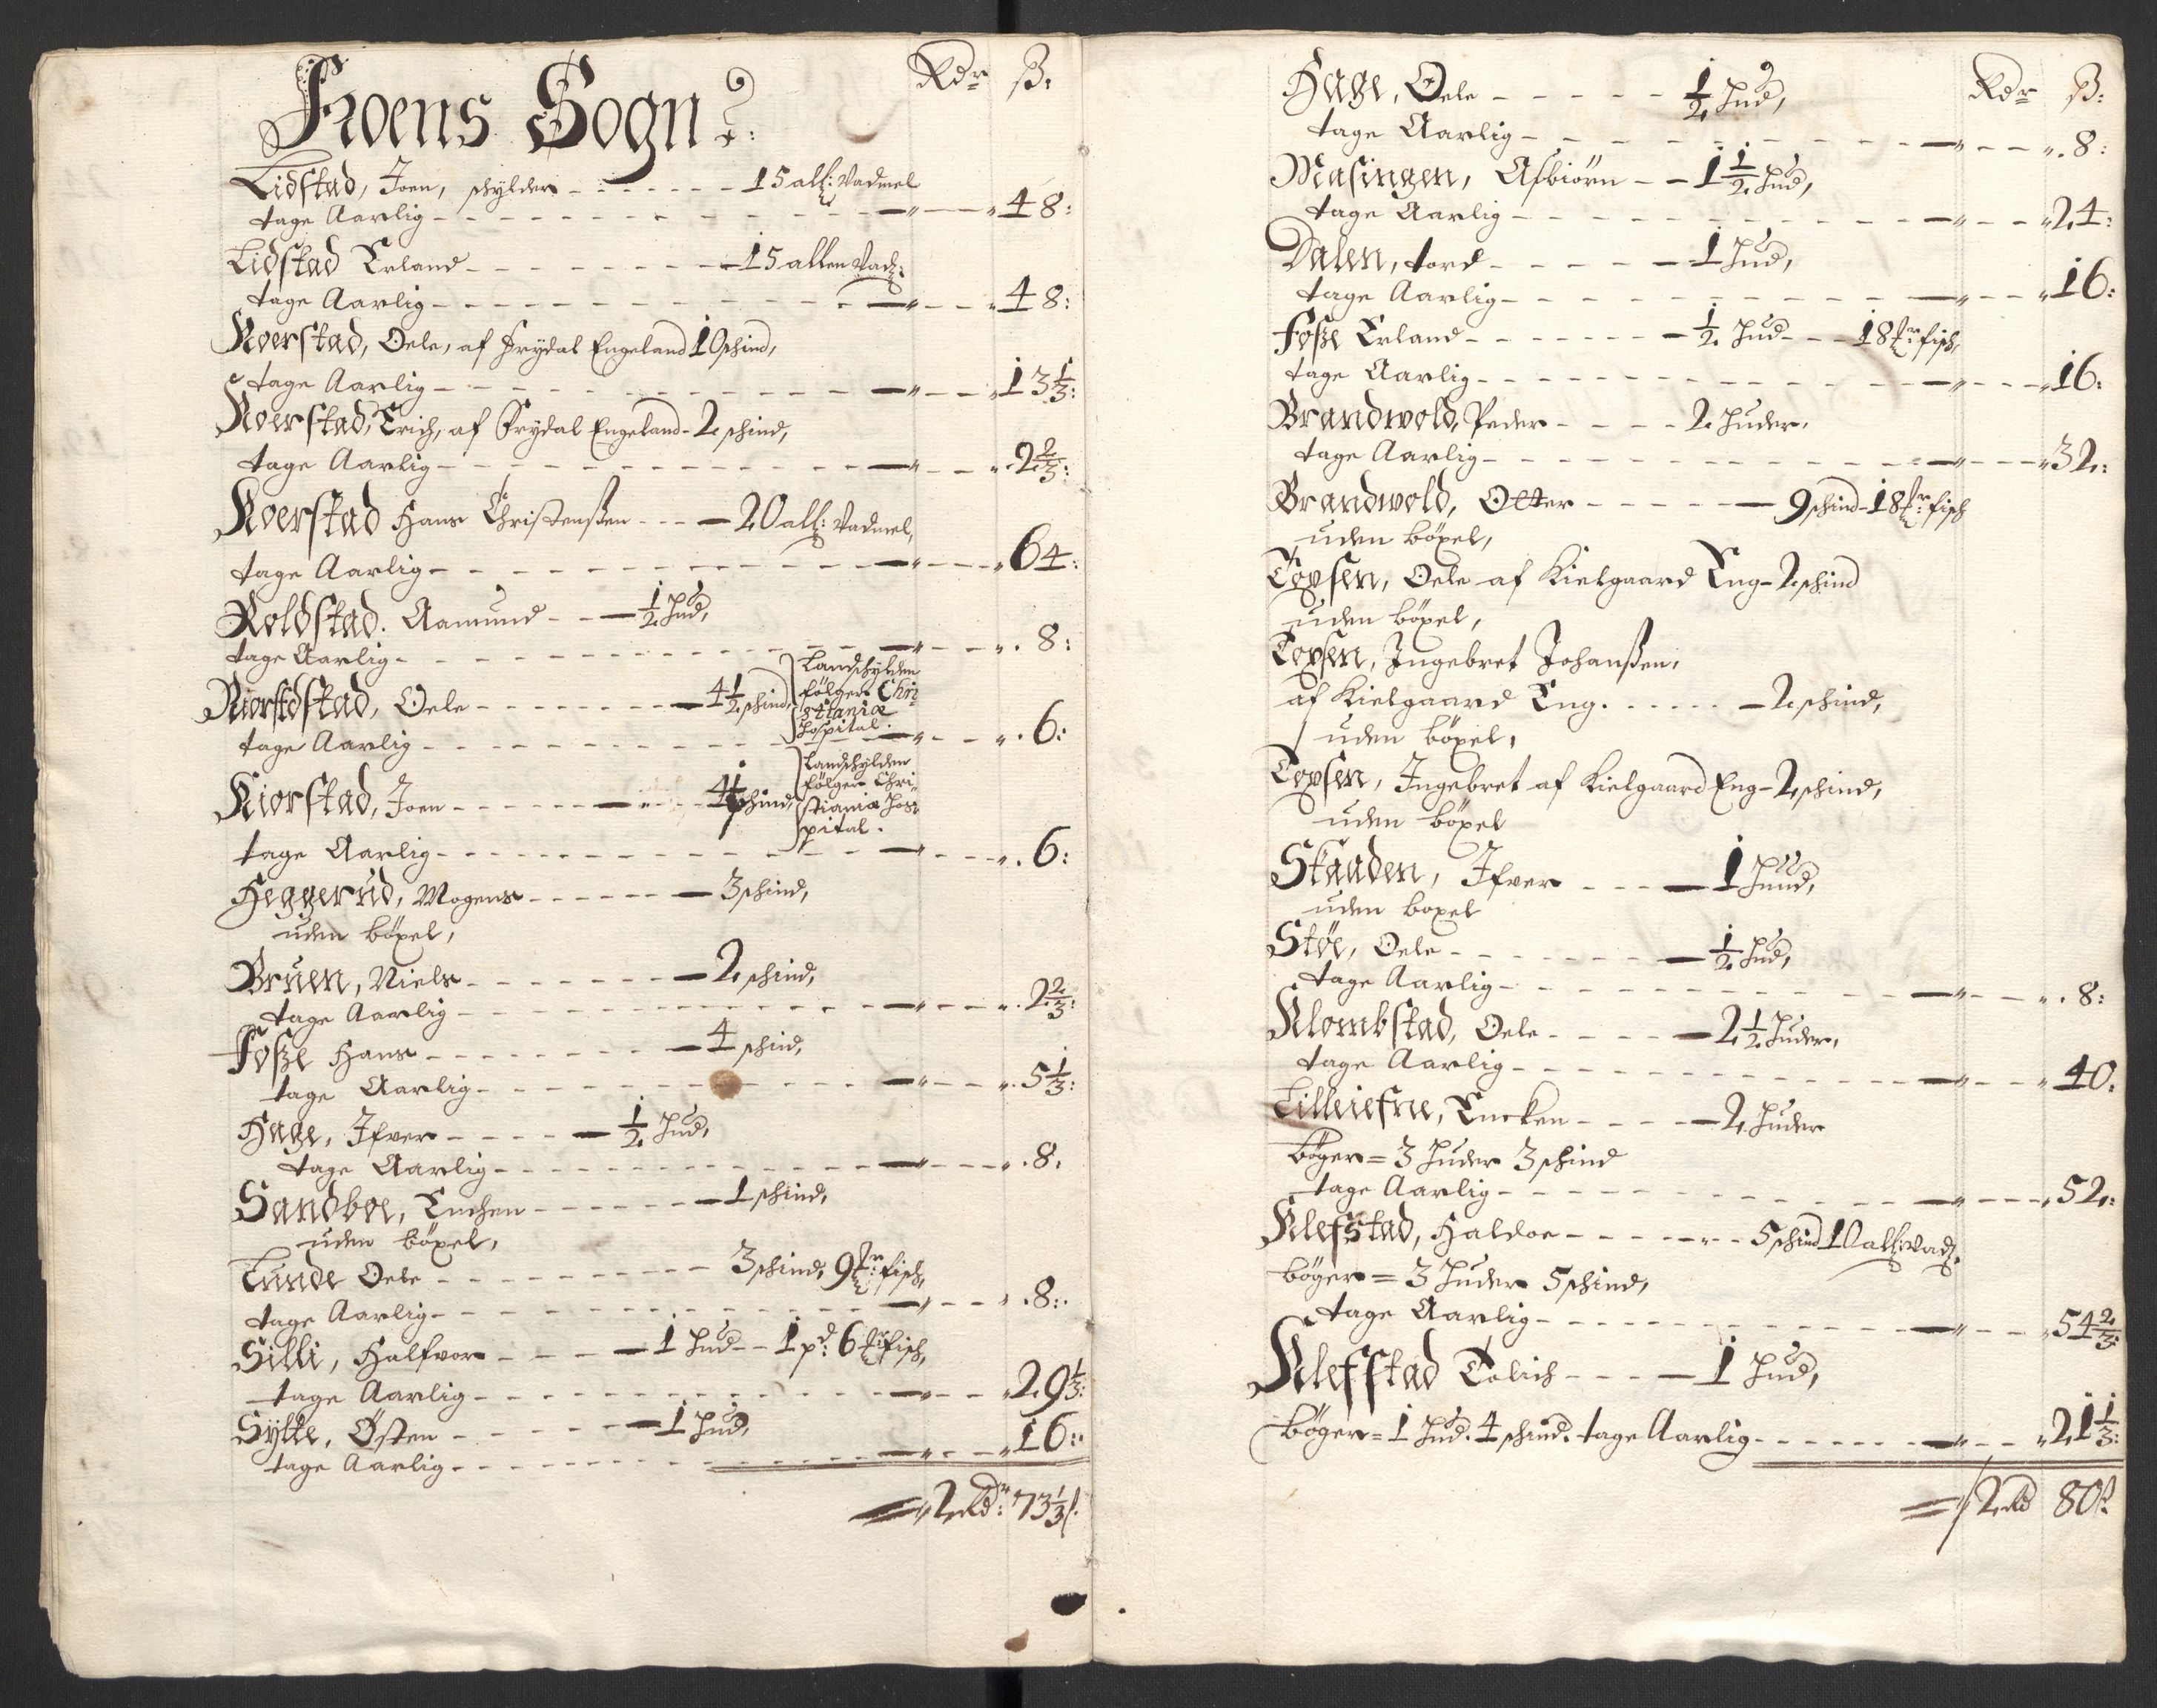 Froens Sogn
Rdr ß:
Lidstad, Joen, schylder - 15 all: Vadmel
tage Aarlig - " - " 48:
Lidstad Erland - 15 allen Vad:
tage Aarlig - " - " 48:
Koerstad, Oele, af Frydal Engeland 10 schind,
tage Aarlig - " - " 13 1/3:
Koerstad, Erich, af Frydal Engeland - 2 schind,
tage Aarlig - " - " 2 2/3:
Koerstad Hans Christensßen - 20 all: Vadmel,
tage Aarlig - " - " 64:
Roldstad. Aamund - 1/2 Hud,
tage Aarlig - " - " 8:
Kiorstad, Oele - 4 1/2 schind, Landschylden
følger Chri
stiania
Hospital.
tage Aarlig - " - " 6:
Kiorstad, Joen - 4 1/2 schind, Landschylden
følger Chri-
stiania Hos-
pital.
tage Aarlig - " - " 6:
Heggerud, Mogens - 3 schind,
uden böxel,
Bruen, Niels - 2 schind,
tage Aarlig - " - " 2 2/3:
Foße Hans - 4 schind,
tage Aarlig - " - " 5 1/3:
Hage, Ifver - 1/2 Hud,
tage Aarlig - " - " 8.
Sandboe, Enchen - 1 schind,
uden böxel,
Lunde Oele - 3 schind, 9 mr: fisch,
tage Aarlig - " - " 8:
Silli, Halfvor - 1 Hud - 1 pd: 6 mr fisch,
tage Aarlig - " - " 29 1/3:
Sylte, Østen - 1 Hud,
tage Aarlig - " - " 16:
2 Rdr: 73 1/3 ß.
Rdr ß:
Hage, Oele - 1/2 Hud,
tage Aarlig - " - " 8:
Masingen, Asbiörn - 1 1/2 Hud,
tage Aarlig - " - " 24:
Dalen, tord - 1 Hud,
tage Aarlig - " - " 16:
Foße Erland - 1/2 Hud - 18 mr fisch,
tage Aarlig - " - " 16:
Brandwold, Peder - 2 Huder,
tage Aarlig - " - " 32:
Brandwold, Otter - 9 schind - 18 mr: fisch
uden böxel,
Tofsen, Oele af Kielgaard Eng - 2 schind
uden böxel,
Tofsen, Ingebret Johanßen,
af Kielgaard Eng. - 2 schind,
uden böxel,
Tofsen, Ingebret af Kielgaard Eng - 2 schind,
uden böxel
Staaden, Ifver - 1 Huud,
uden boxel
Støe, Oele - 1/2 Hud,
tage Aarlig - " - " 8:
Klombstad, Oele - 2 1/2 Huder,
tage Aarlig - " - " 40:
Lilleiefne, Encken - 2 Huder
böger = 3 Huder 3 schind
tage Aarlig - " - " 52:
Klefstad, Haldor - 5 schind 10 all: Vad:
böger = 3 Huder 5 schind,
tage Aarlig - " - " 54 2/3:
Klefstad Erlich - 1 Hud,
böger = 1 Hud. 4 schind. tage Aarlig - " - " 21 1/3:
2 Rd 80 ß.